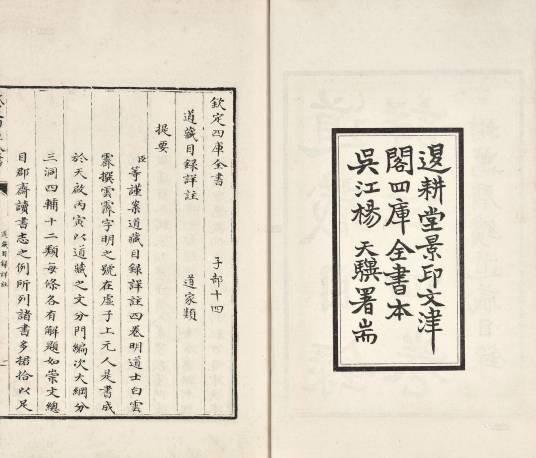 逻耕堂景印文津
閣四庫全書本
吳江楊天驥署耑
欽定四庫全書　子部十四
道藏目録詳註　道家類
提要
臣等謹案道藏目録詳註四卷明道士白雲
霽撰雲霽字明之號在虚子上元人是書成
於天啟丙寅以道藏之文分門編次大綱分
三洞四輔十二類每條各有解題如崇文總
目郡齋讀書志之例所列諸書多捃拾以足
道藏目録詳註
一